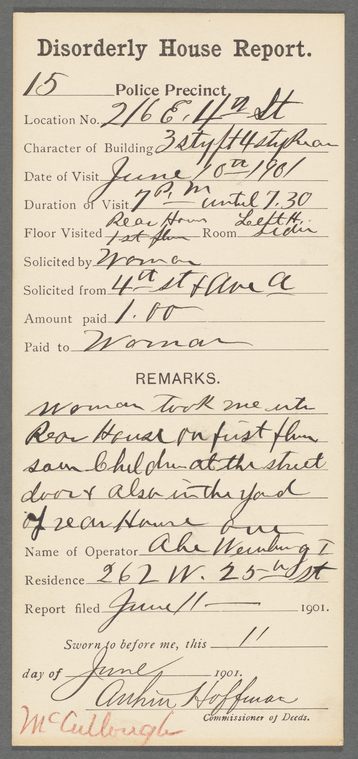 Disorderly House Report.
15 Police Precinct,
Location No. 216 E. 4th St
Character of Building 3 sty ft 4 sty Rear
Date of Visit June 10th 1901
Duration of Visit 7 P.M until 7.30
Floor Visited Rear House 1st floor Room Left H. Side
Solicited by Woman
Solicited from 4th st & Ave A
Amount paid 1.00
Paid to Woman
REMARKS.
Woman took me into
Rear House on first floor
saw Children at the street
door & also in the yard
of rear House
Name of Operator Abe
Residence 262 W. 25th St
Report filed June 11 1901.
Sworn to before me, this 11
day of June 1901.
Hoffman
Commissioner of Deeds.
McCullough